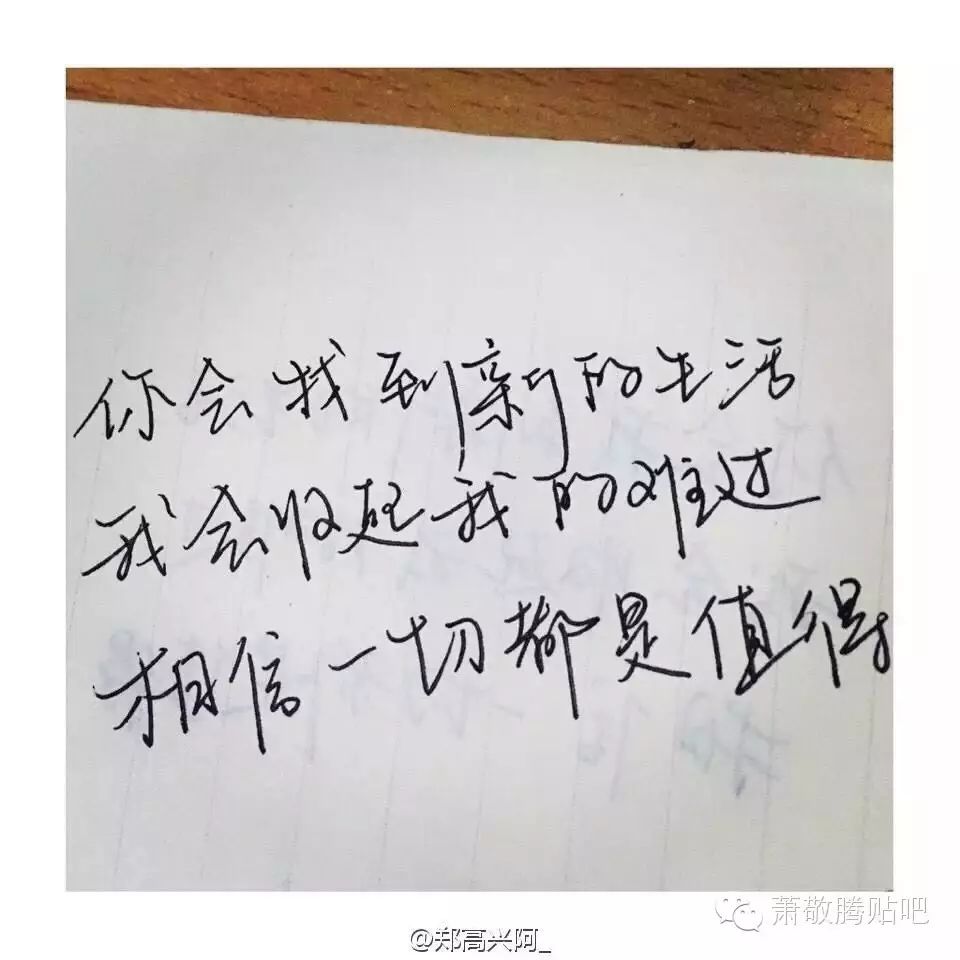 你会找到新的生活
我会收起我的难过
相信一切都是值得
萧敬腾贴吧
@郑高兴阿_